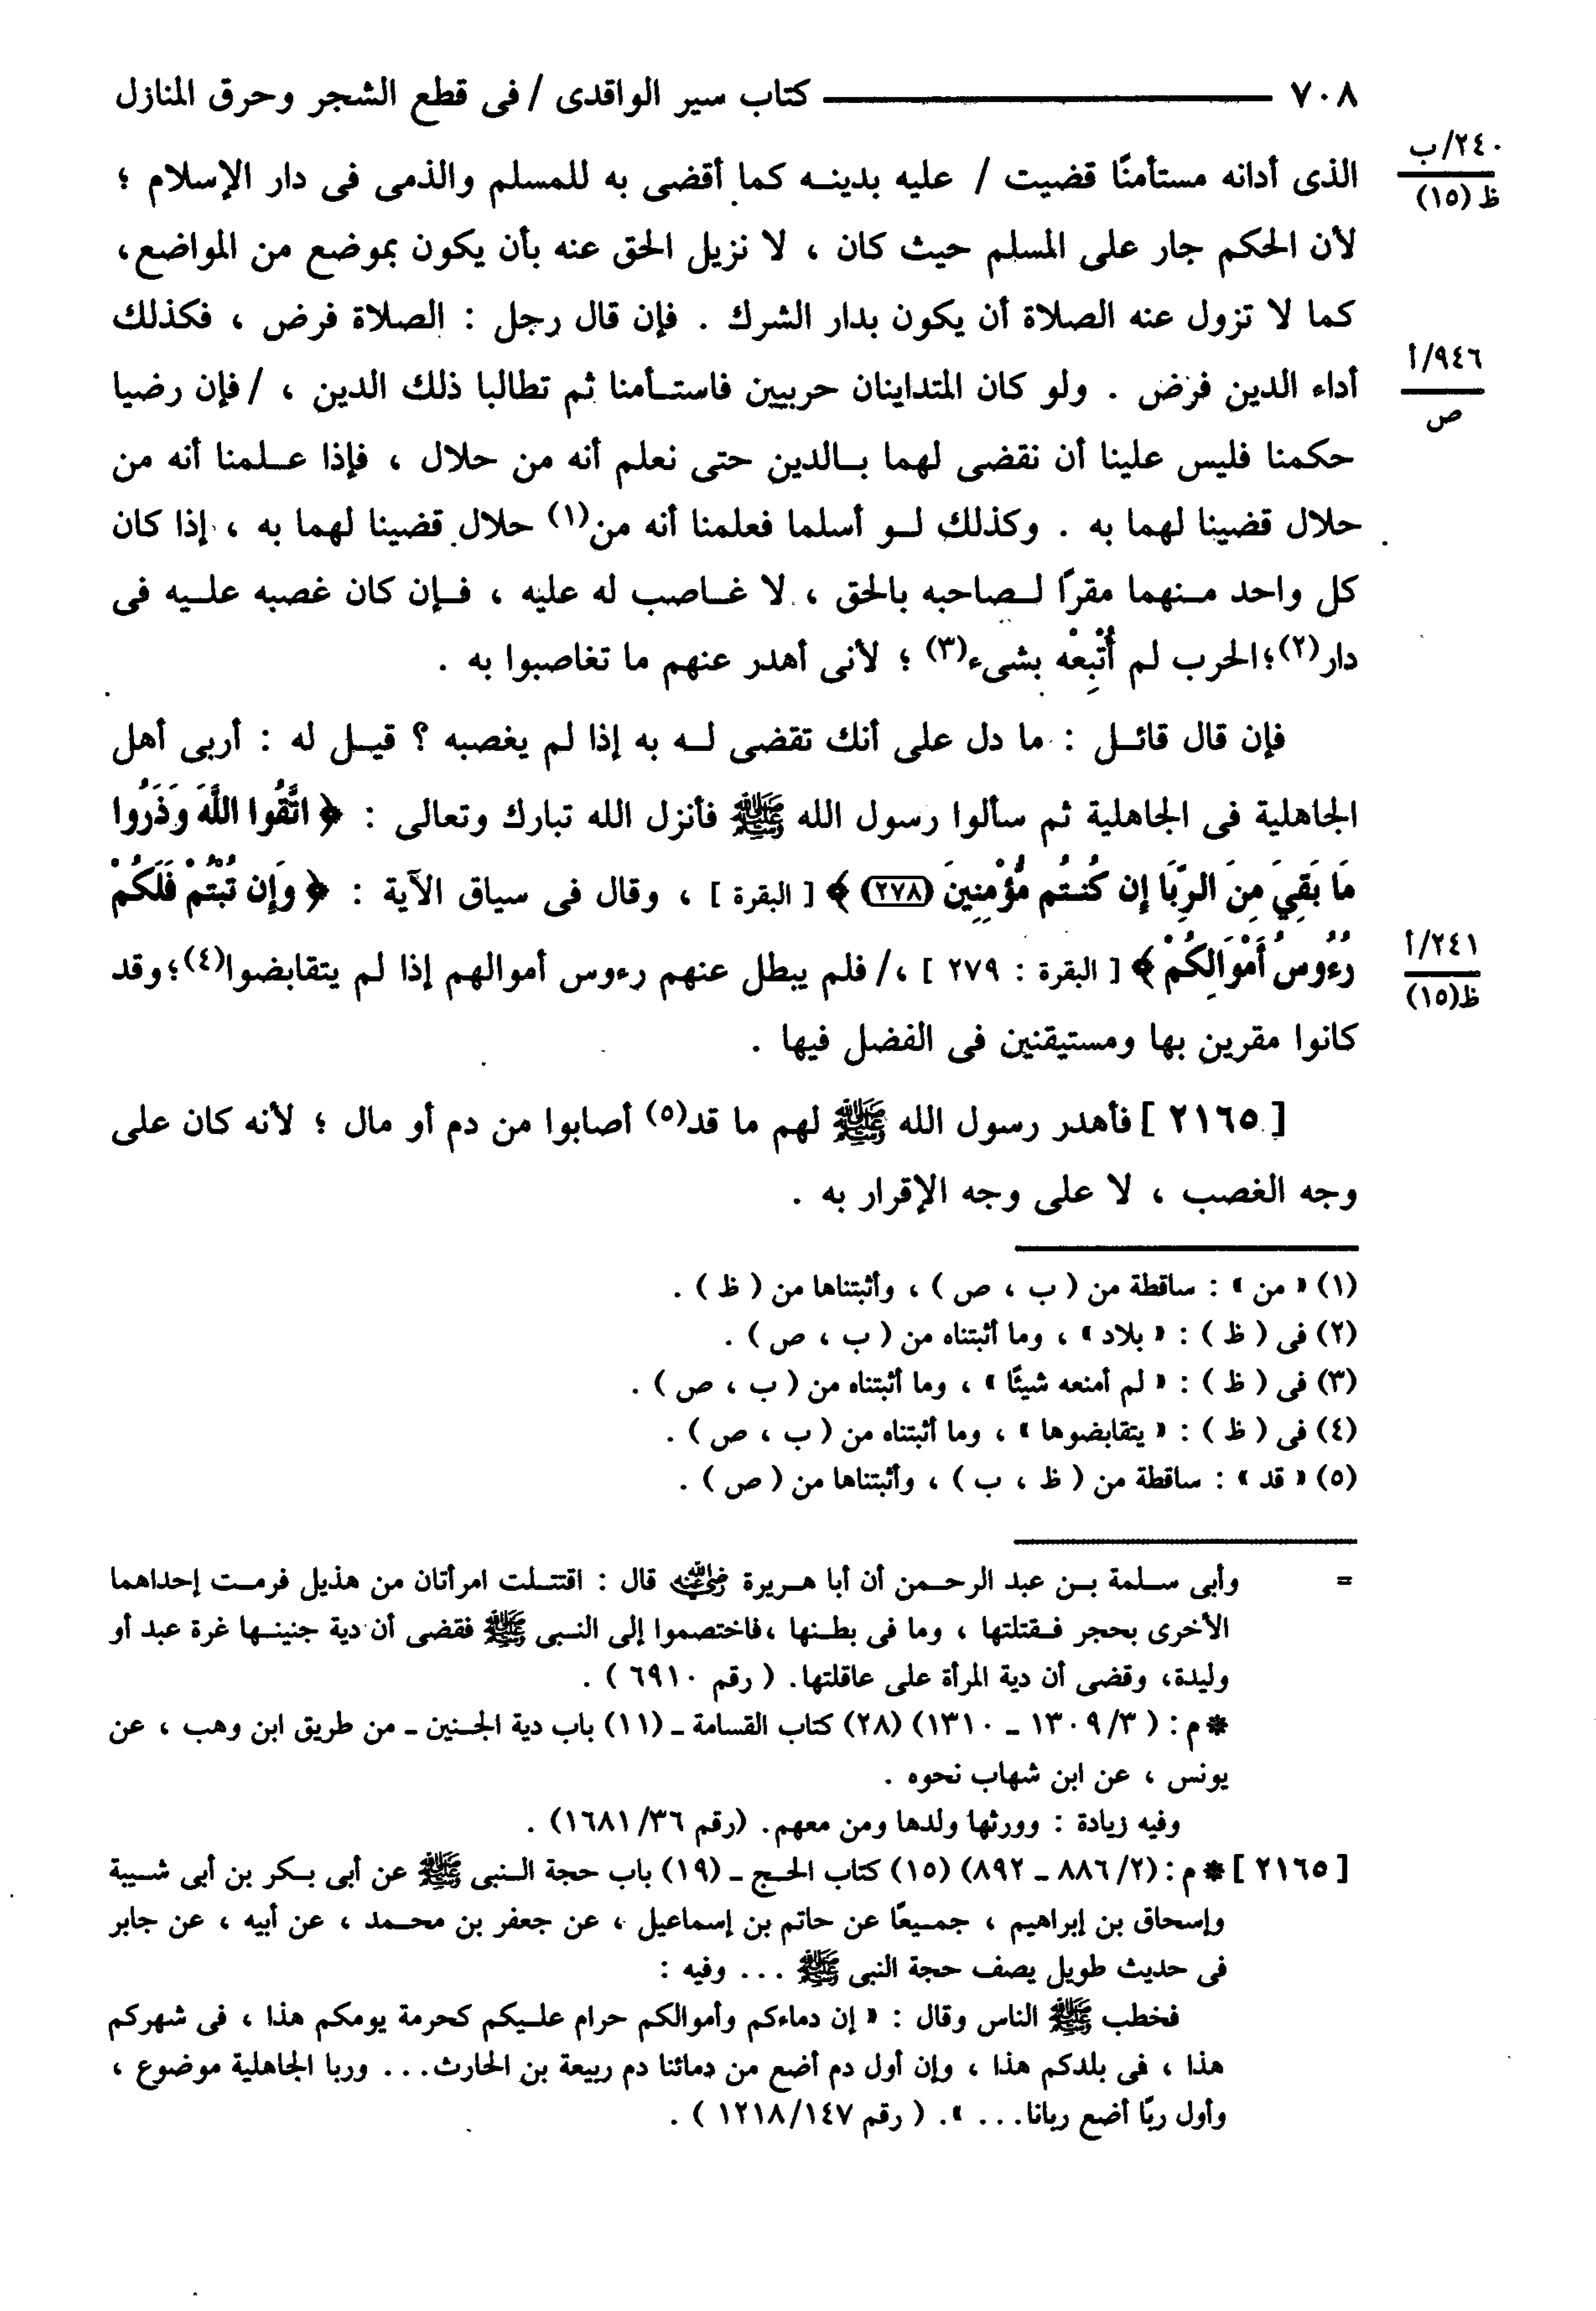 ٧٠٨ ــــــــــــــــــــ كتاب سير الواقدى / فى قطع الشجر وحرق المنازل
٢٤٠/ب
ظ (١٥)
الذى أدانه مستأمنًا قضيت / عليه بدينه كما أقضى به للمسلم والذمى فى دار الإسلام ؛
لأن الحكم جار على المسلم حيث كان ، لا نزيل الحق عنه بأن يكون بموضع من المواضع،
كما لا تزول عنه الصلاة أن يكون بدار الشرك . فإن قال رجل : الصلاة فرض ، فكذلك
٩٤٦/أ
ص
أداء الدين فرض . ولو كان المتداينان حربيين فاستأمنا ثم تطالبا ذلك الدين ، /فإن رضيا
حكمنا فليس علينا أن نقضى لهما بالدين حتى نعلم أنه من حلال ، فإذا علمنا أنه من
حلال قضينا لهما به . وكذلك لو أسلما فعلمنا أنه من(١) حلال قضينا لهما به ، إذا كان
كل واحد منهما مقرًا لصاحبه بالحق ، لا غاصب له عليه ، فإن كان غصبه عليه فى
دار(٢)؛الحرب لم أُتْبِعْه بشىء(٣) ؛ لأنى أهدر عنهم ما تغاصبوا به .
فإن قال قائل : ما دل على أنك تقضى له به إذا لم يغصبه ؟ قيل له : أربى أهل
الجاهلية فى الجاهلية ثم سألوا رسول الله ﷺ فأنزل الله تبارك وتعالى : ﴿ اتَّقُوا اللَّهَ وَذَرُوا
مَا بَقِيَ مِنَ الرِّبَا إِن كُنتُم مُّؤْمِنِينَ (٢٧٨) ﴾ [ البقرة ] ، وقال فى سياق الآية : ﴿ وَإِن تُبْتُمْ فَلَكُمْ
٢٤١/أ
ظ(١٥)
رُءُوسُ أَمْوَالِكُمْ ﴾ [ البقرة : ٢٧٩ ] ،/ فلم يبطل عنهم رءوس أموالهم إذا لم يتقابضوا(٤)؛وقد
كانوا مقرين بها ومستيقنين فى الفضل فيها .
[ ٢١٦٥ ] فأهدر رسول الله ﷺ لهم ما قد(٥) أصابوا من دم أو مال ؛ لأنه كان على
وجه الغصب ، لا على وجه الإقرار به .
(١) « من » : ساقطة من ( ب ، ص ) ، وأثبتناها من ( ظ ) .
(٢) فى ( ظ ) : « بلاد » ، وما أثبتناه من ( ب ، ص ) .
(٣) فى ( ظ ) : « لم أمنعه شيئًا » ، وما أثبتناه من ( ب ، ص ) .
(٤) فى ( ظ ) : « يتقابضوها » ، وما أثبتناه من ( ب ، ص ) .
(٥) « قد » : ساقطة من ( ظ ، ب ) ، وأثبتناها من ( ص ) .
= وأبى سلمة بن عبد الرحمن أن أبا هريرة رضي الله عنه قال : اقتتلت امرأتان من هذيل فرمت إحداهما
الأخرى بحجر فقتلتها ، وما فى بطنها ،فاختصموا إلى النبى ﷺ فقضى أن دية جنينها غرة عبد أو
وليدة، وقضى أن دية المرأة على عاقلتها. ( رقم ٦٩١٠ ) .
* م : ( ٣/ ١٣٠٩ ـ ١٣١٠) (٢٨) كتاب القسامة ـ (١١) باب دية الجنين ـ من طريق ابن وهب ، عن
يونس ، عن ابن شهاب نحوه .
وفيه زيادة : وورثها ولدها ومن معهم. (رقم ٣٦/ ١٦٨١) .
[ ٢١٦٥ ] * م : (٢/ ٨٨٦ ـ ٨٩٢) (١٥) كتاب الحج ـ (١٩) باب حجة النبى ﷺ عن أبى بكر بن أبى شيبة
وإسحاق بن إبراهيم ، جميعًا عن حاتم بن إسماعيل ، عن جعفر بن محمد ، عن أبيه ، عن جابر
فى حديث طويل يصف حجة النبى ﷺ ... وفيه :
فخطب ﷺ الناس وقال : « إن دماءكم وأموالكم حرام عليكم كحرمة يومكم هذا ، فى شهركم
هذا ، فى بلدكم هذا ، وإن أول دم أضع من دمائنا دم ربيعة بن الحارث... وربا الجاهلية موضوع ،
وأول ربًا أضع ربانا... ». ( رقم ١٢١٨/١٤٧ ) .